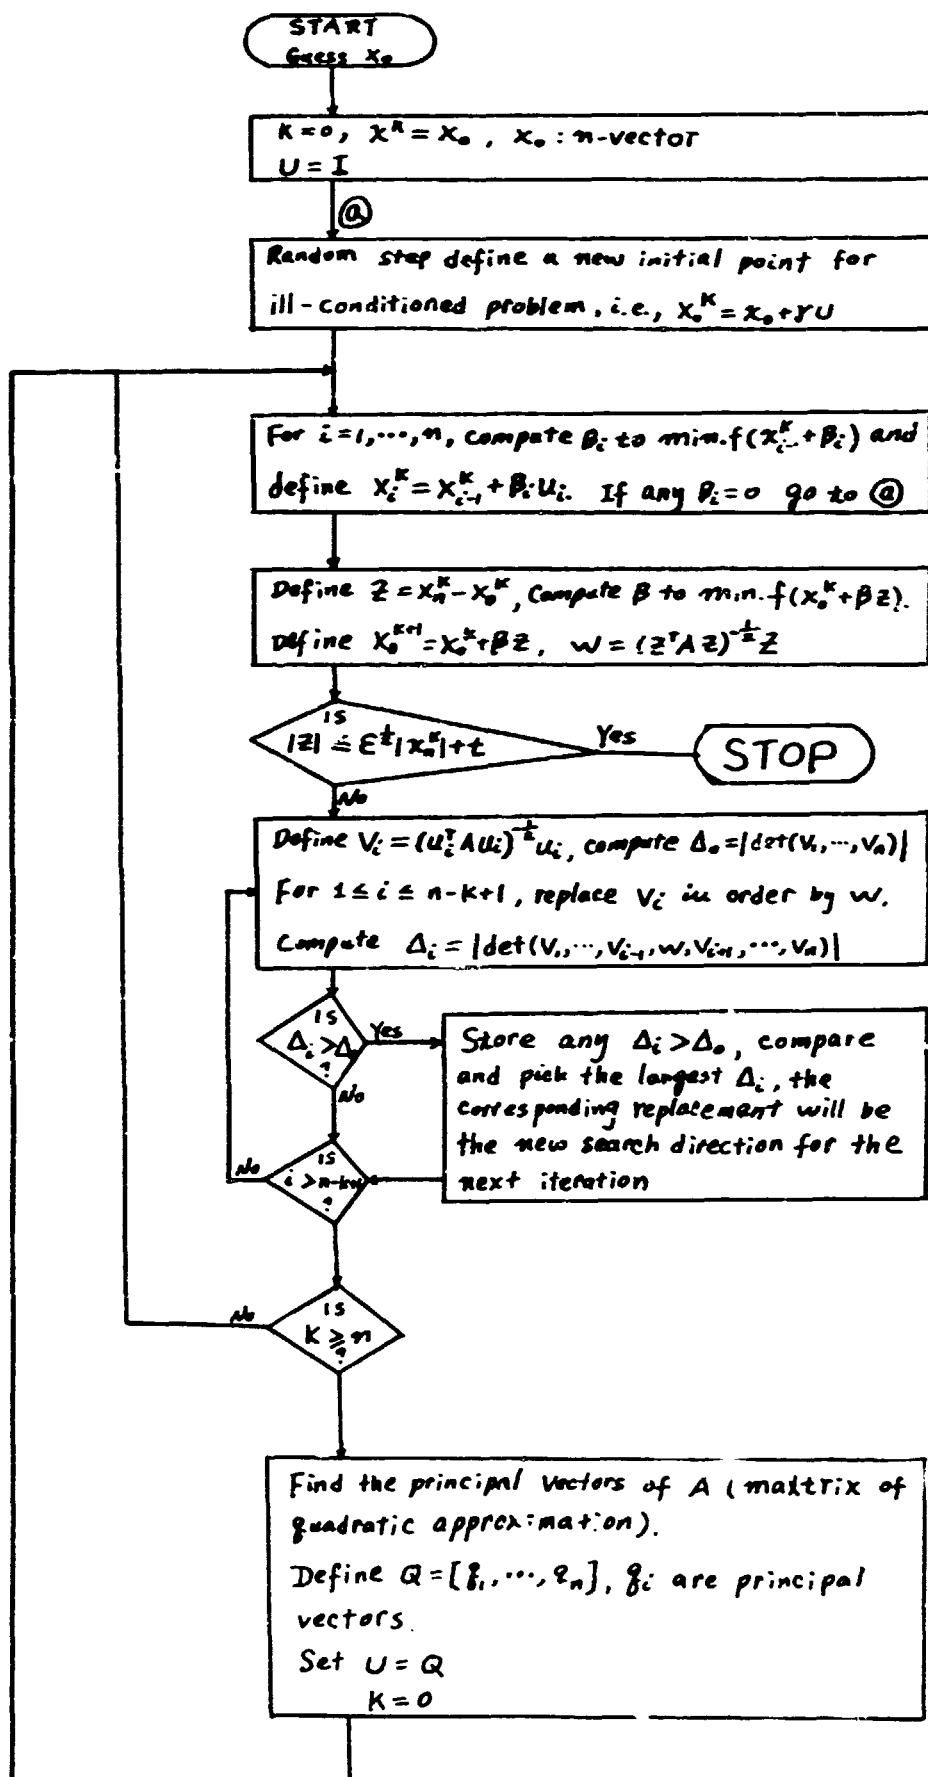 START
Guess x₀
K=0, x^K = x₀, x₀ : n-vector
U = I
ⓐ
Random step define a new initial point for
ill-conditioned problem, i.e., x₀^K = x₀ + γU
For i=1,⋯,n, compute β_i to min. f(x_{i-}^K + β_i) and
define x_i^K = x_{i-1}^K + β_i u_i. If any β_i = 0 go to ⓐ
Define Z = x_n^K - x₀^K, Compute β to min. f(x₀^K + βz).
Define x₀^{K+1} = x₀^K + βz, w = (z^T A z)^{-1/2} z
is
|z| ≤ ε^{1/2} |x_n^K| + t
Yes
STOP
No
Define V_i = (u_i^T A u_i)^{-1/2} u_i, compute Δ₀ = |det(V₁,⋯,V_n)|
For 1 ≤ i ≤ n-k+1, replace V_i in order by w.
Compute Δ_i = |det(V₁,⋯,V_{i-1}, w, V_{i+1},⋯,V_n)|
is
Δ_i > Δ₀
?
Yes
No
Store any Δ_i > Δ₀, compare
and pick the largest Δ_i, the
corresponding replacement will be
the new search direction for the
next iteration
is
i > n-k+1
?
No
is
K ≥ n
?
No
Find the principal vectors of A (mattrix of
quadratic approximation).
Define Q = [q₁,⋯,q_n], q_i are principal
vectors.
Set U = Q
K = 0